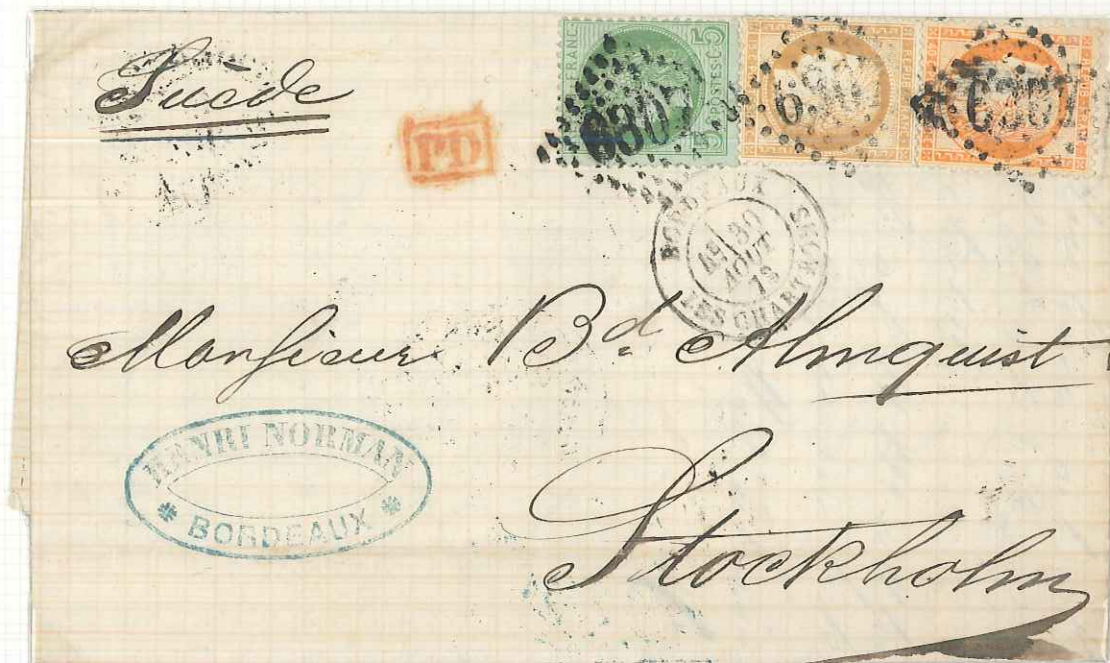 Suède
PD
FRANC POSTES 5 C
6307
6307
6307
BORDEAUX
LES CHARTRONS
30
AOUT
Monsieur Bd. Almquist
HENRI NORMAN
BORDEAUX
Stockholm